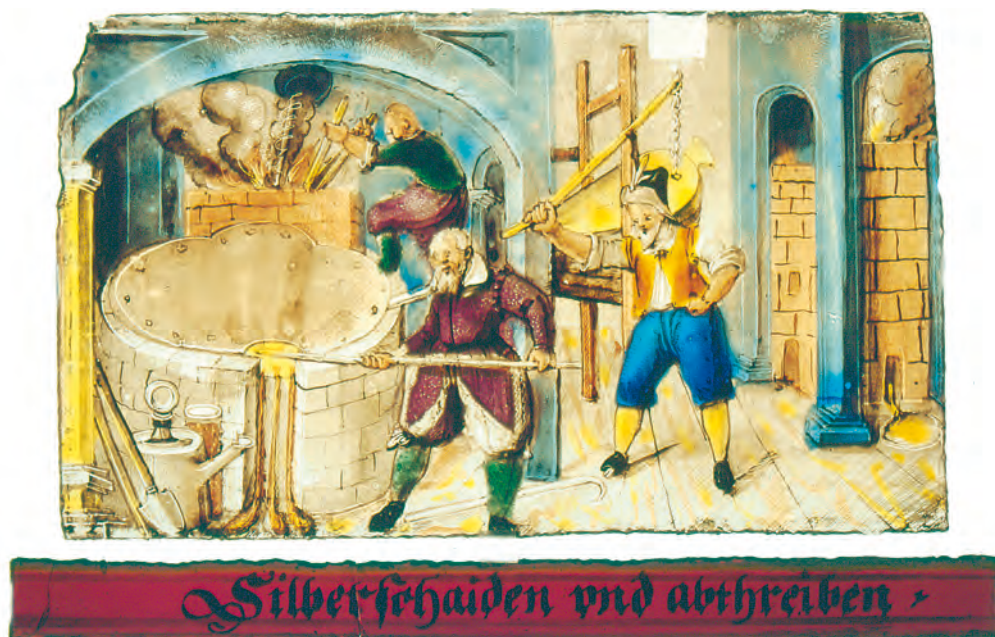 Silberschaiden vnd abthreiben